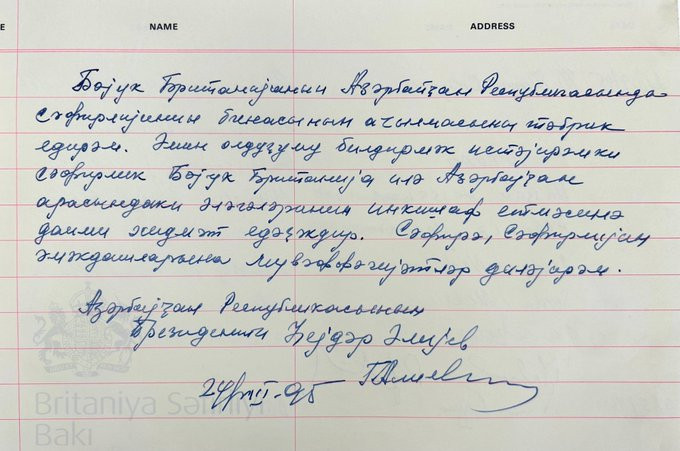 E NAME ADDRESS
Бөјук Британијанын Азәрбајҹан Республикасында
сәфирлијинин бинасынын ачылмасыны тәбрик
едирәм. Әмин олдуғуму билдирмәк истәјирәм ки
сәфирлик Бөјук Британија илә Азәрбајҹан
арасындакы әлагәләринин инкишаф етмәсинә
даими хидмәт едәҹәкдир. Сәфирә, Сәфирлијин
әмәкдашларына мувәффәгијјәтләр диләјирәм.
Азәрбајҹан Республикасынын
Президенти Һејдәр Әлијев
Г Алиев
24/VIII-95
Britaniya Səfirliyi
Bakı